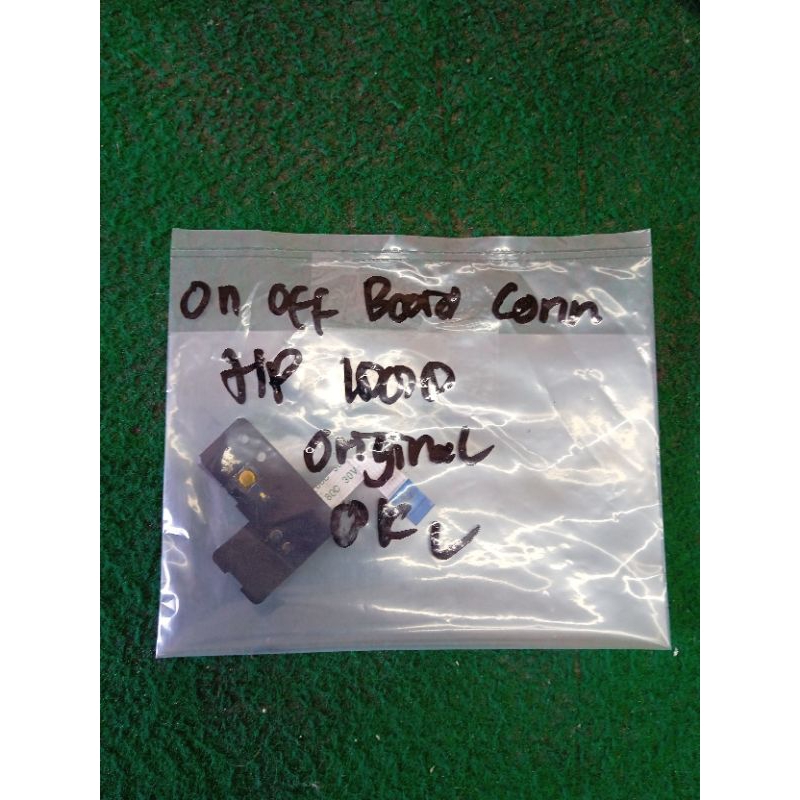 On Off Board Conn
HP 1000
Original
80C 30V
OK